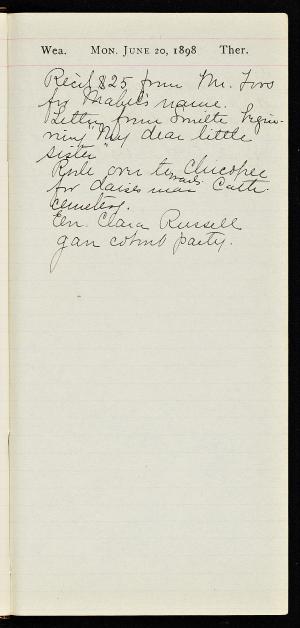 Wea. MON. JUNE 20, 1898 Ther.
Rec'd $25 from Mr.
for Mabel's name.
Letter from Smith begin-
ning "My dear little
sister"
Rode over towards Chicopee
for daisies near Cath.
cemetery.
Eve. Clara Russell
gave party.